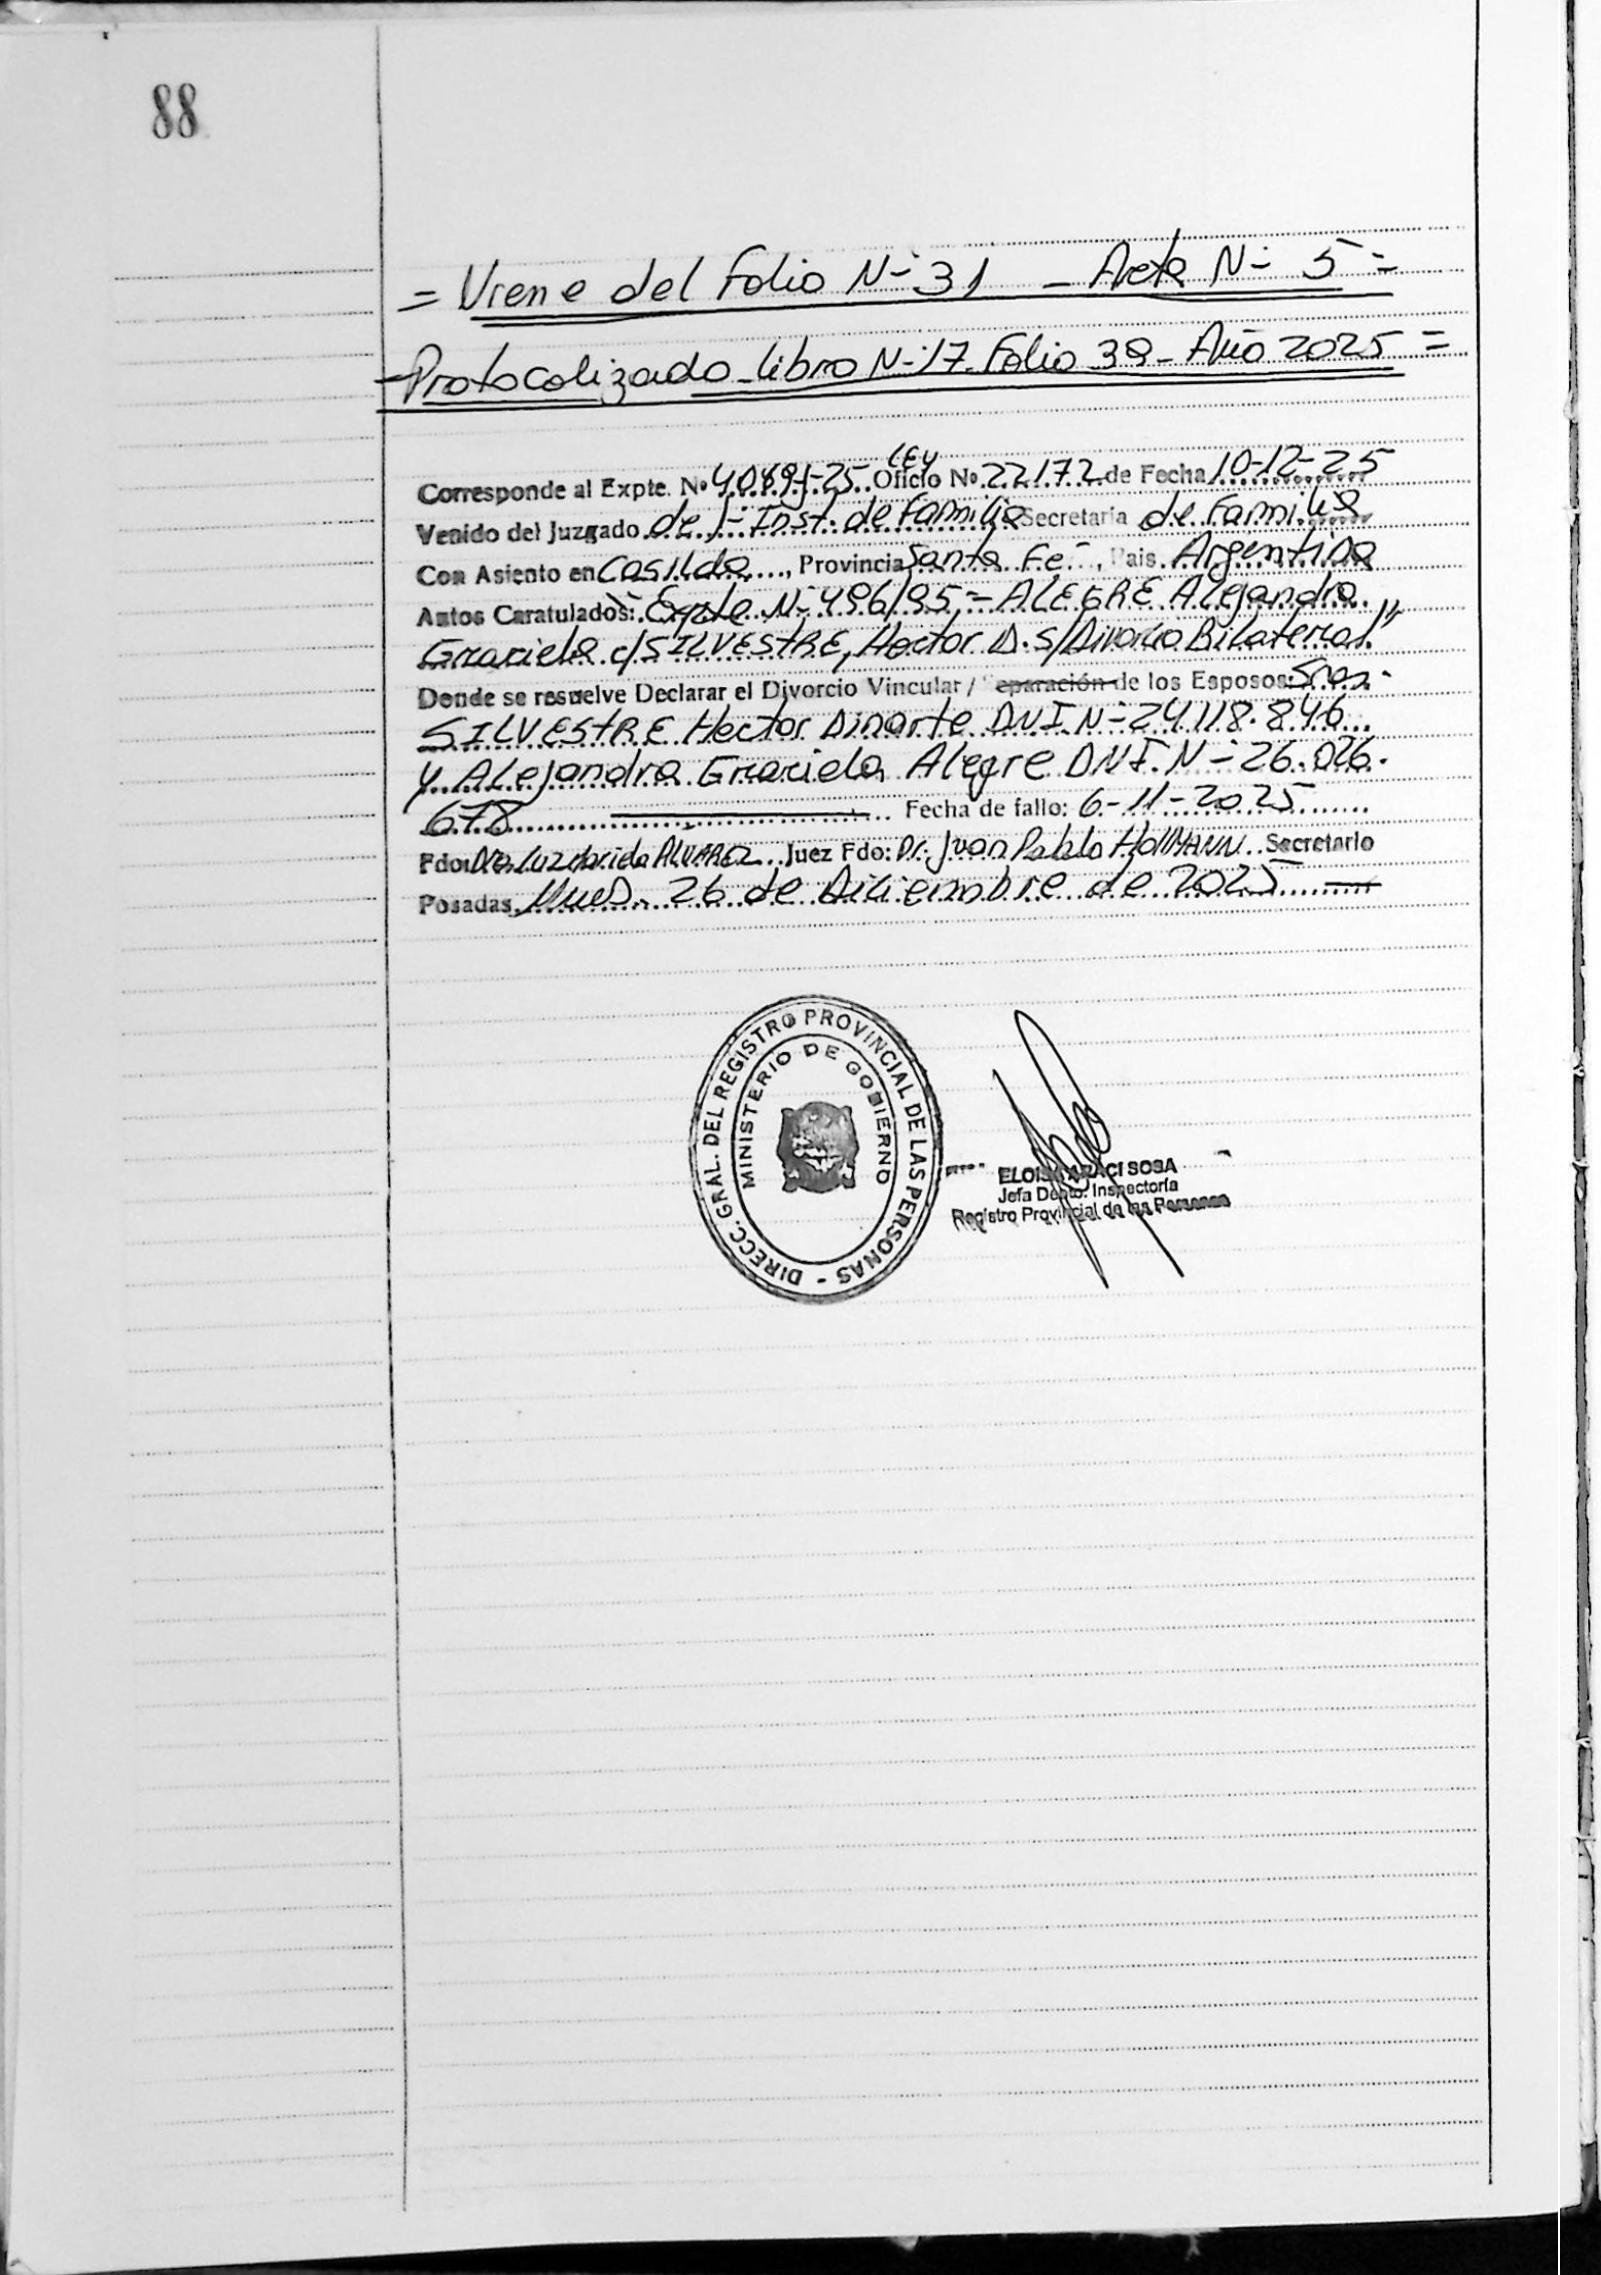 88
= Viene del Folio N- 31 - Acta N- 5 =
- Protocolizado - libro N- 17 - Folio 39 - Año 2025 =
LEY
Corresponde al Expte. Nº 4089-J-25 Oficio Nº 22172 de Fecha 10-12-25
Venido del Juzgado de 1- Inst. de Familia Secretaría de Familia
Con Asiento en Casilda, Provincia Santa Fe, Pais Argentina
Autos Caratulados: Expte N- 496/95 - ALEGRE Alejandra
Graciela c/ SILVESTRE, Hector D. s/Divorcio Bilateral"
Donde se resuelve Declarar el Divorcio Vincular / Separación de los Esposos: Sres.
SILVESTRE Hector Dinarte DNI N- 24.118.846
y Alejandra Graciela Alegre DNI. N- 26.026.
678 Fecha de fallo: 6-11-2025
Fdo: Dra. Luz Marida ALVAREZ Juez Fdo: Dr. Juan Pablo HOLLMANN Secretario
Posadas, Mnes. 26 de Diciembre de 2025
DIRECC. GRAL. DEL REGISTRO PROVINCIAL DE LAS PERSONAS -
MINISTERIO DE GOBIERNO
ELOISA ARACI SOSA
Jefa Depto. Inspectoría
Registro Provincial de las Personas